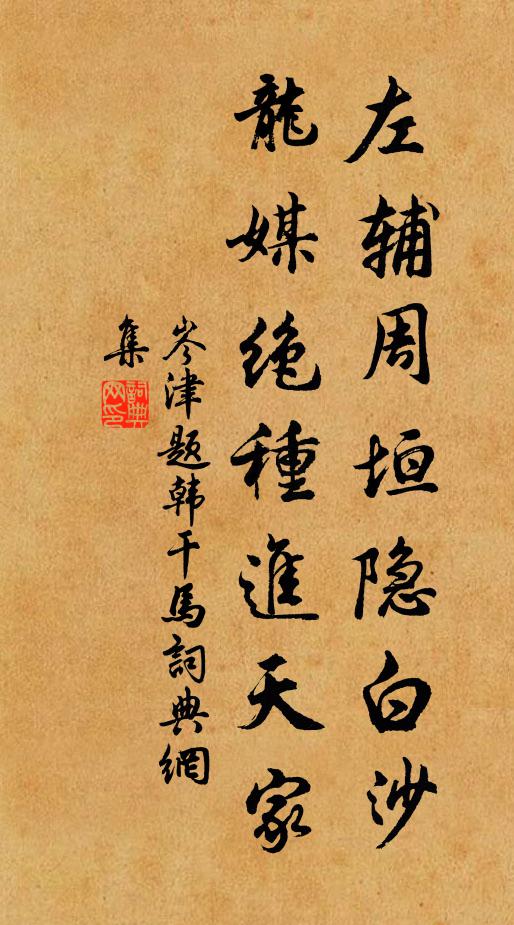 左辅周垣隐白沙
龍媒绝種進天家
岑津题韩干馬詞典網
集
詞典
网印